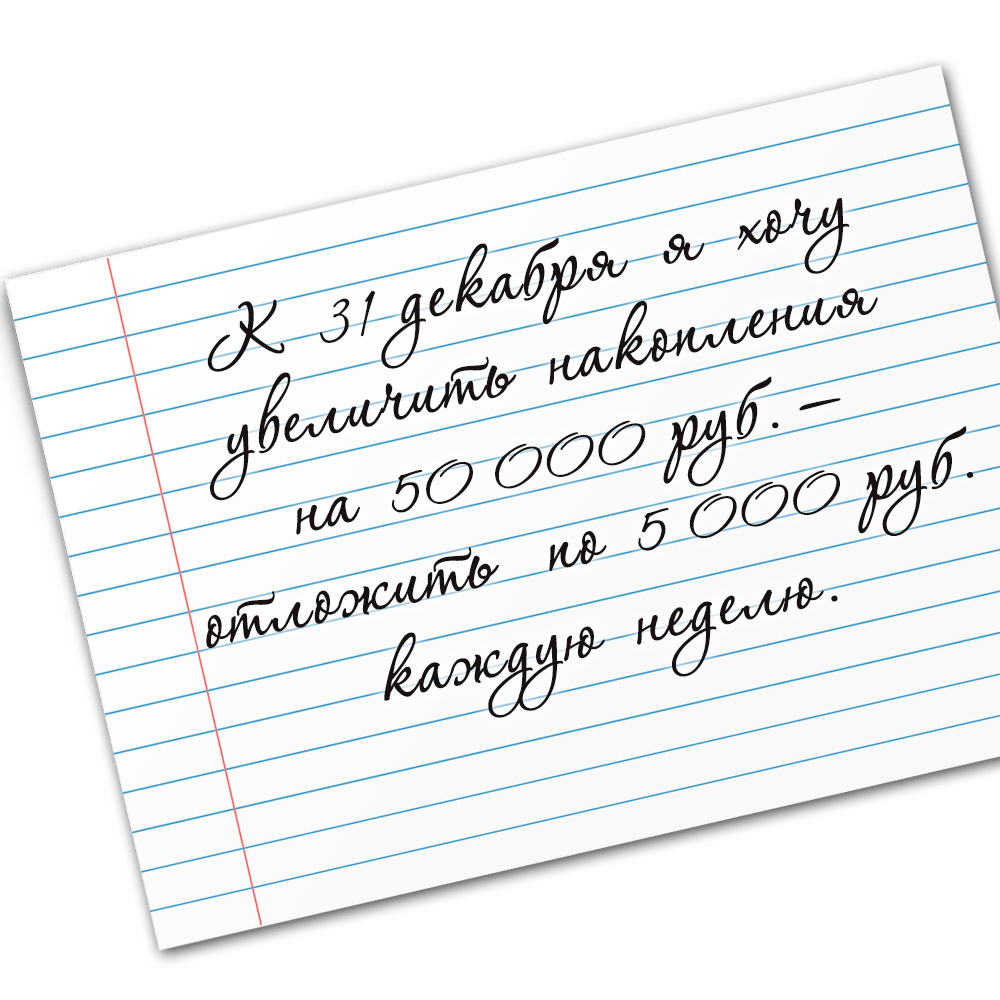 К 31 декабря я хочу
увеличить накопления
на 50 000 руб. –
отложить по 5 000 руб.
каждую неделю.